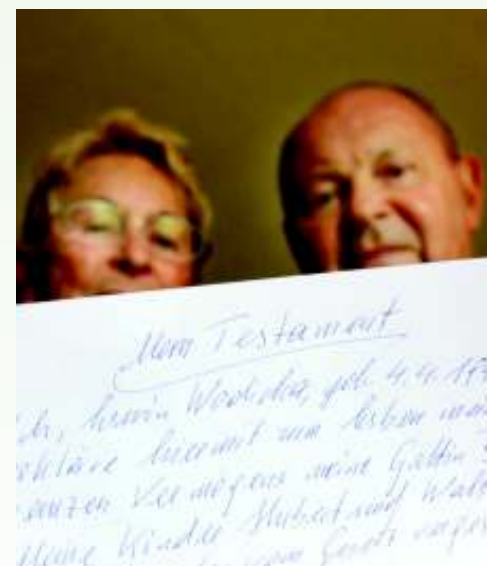 Mein Testament
Ich, Erwin Wodicka, geb. 4.4.19
erkläre hiermit zum Erben mei
ganzen Vermögens meine Gattin S
Meine Kinder Hubert und Wal
vom Gesetz vorges